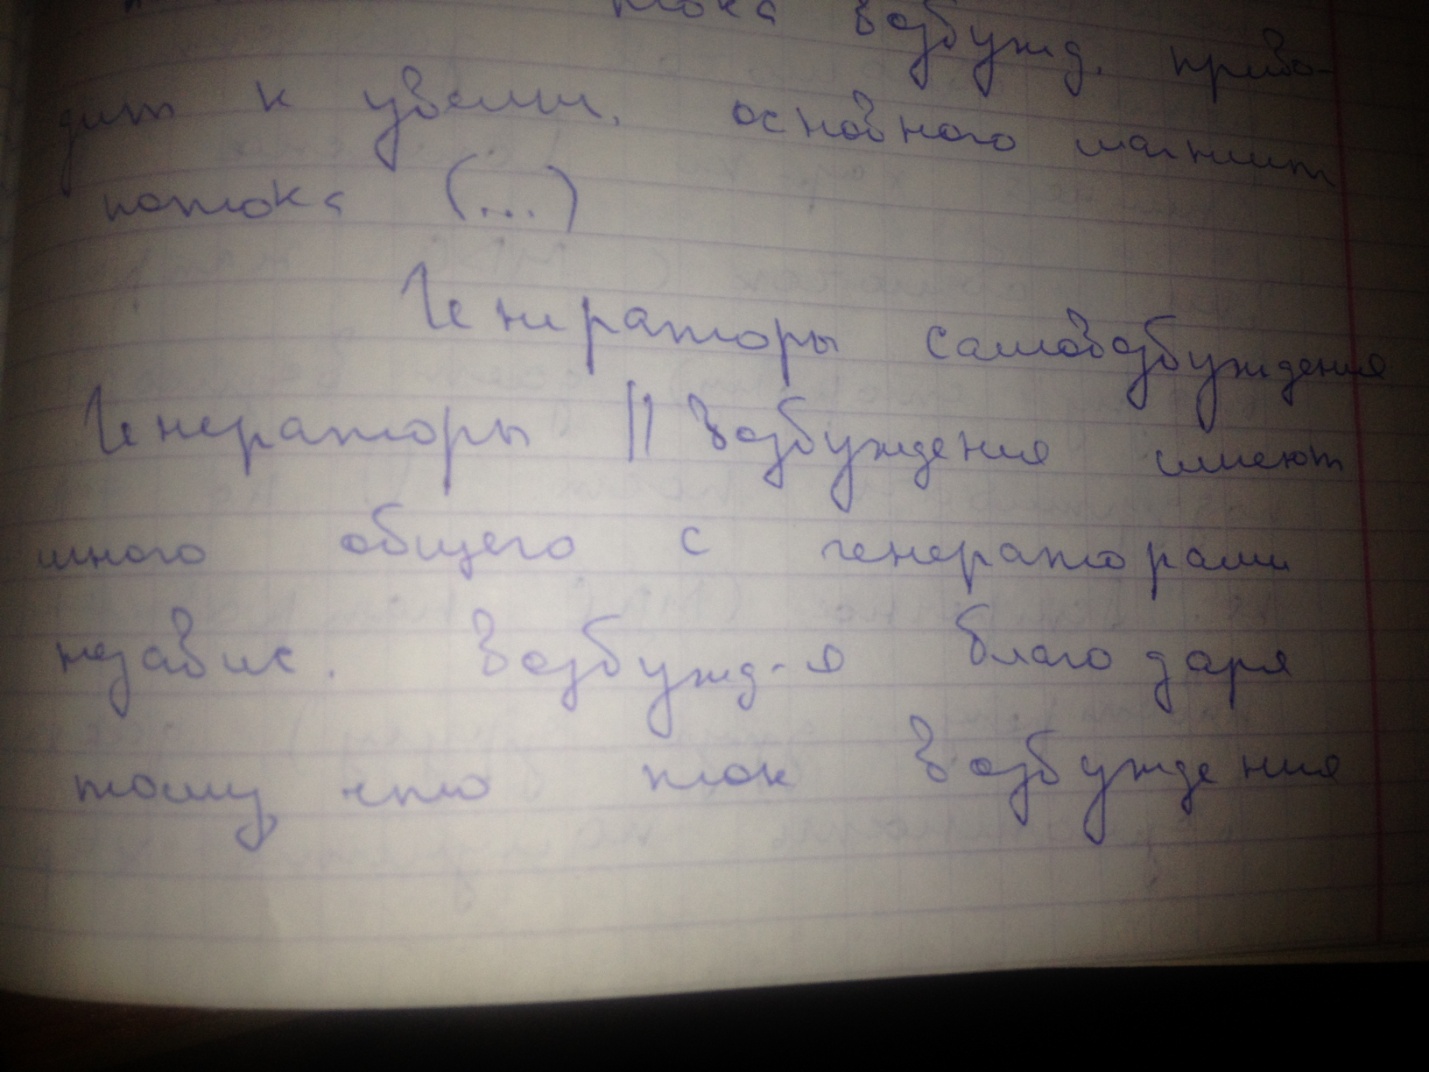 тока возбужд. приво-
дит к увелич. основного магнит
потока (...)
Генераторы самовозбуждения
Генераторы || возбуждения имеют
много общего с генераторами
независ. возбужд-я благодаря
тому что ток возбуждения